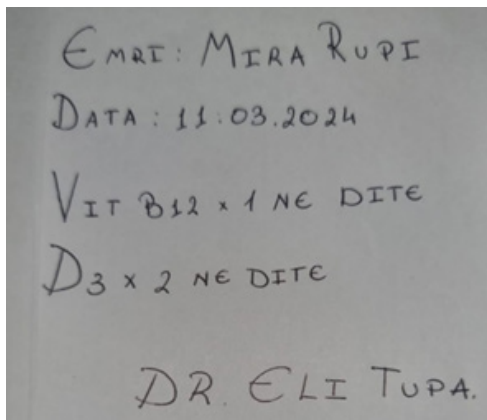 EMRI: MIRA RUPI
DATA: 11.03.2024
VIT B12 x 1 NE DITE
D3 x 2 NE DITE
DR. ELI TUPA.